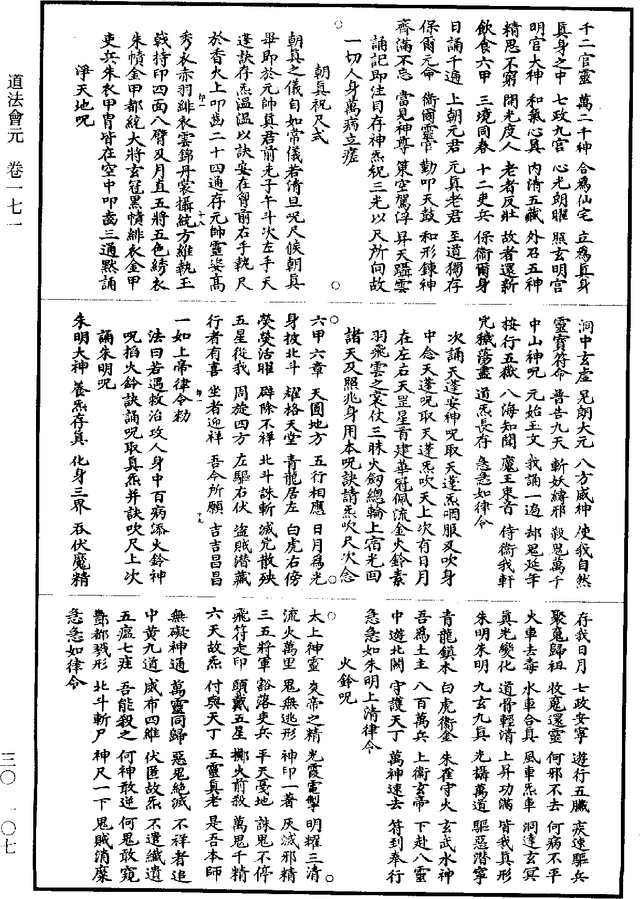 道法會元　卷一七一
三〇　一〇七
千二官靈　萬二千神　合為仙宅　立為真身
真身之中　七政九宮　心光朗曜　照玄明宮
明官大神　和氣心真　內清五藏　外召五神
精思不窮　開光度人　老者反壯　故者還新
飲食六甲　三境同春　十二吏兵　保衛爾身
日誦千過　上朝元君　元真老君　至道獨存
保爾元命　衛爾靈官　勤叩天鼓　和形鍊神
齊滿不忘　當見神尊　策空駕浮　昇天躡雲
誦記即注目存神炁祝三光以尺所向故
一切人身萬病立瘥
朝真祝尺式
朝真之儀自如常儀若清旦呪尺候朝真
畢即於元帥真君前先子午斗次左手天
蓬訣存炁溫溫以訣安在胷前右手執尺
於香火上叩齒二十四通存元帥靈姿高
秀衣赤羽緋衣雲錦丹裳攝紋方維執玉
戟持印四面八臂及月直五將五色綉衣
朱幘金甲都統大將玄冠黑幘緋衣金甲
吏兵朱衣甲胄皆在空中叩齒三通默誦
淨天地呪
洞中玄虛　晃朗太元　八方威神　使我自然
靈寶符命　普告九天　斬妖縛邪　殺鬼萬千
中山神呪　元始玉文　我誦一過　却鬼延年
按行五嶽　八海知聞　魔王束首　侍衛我軒
兇穢蕩盡　道炁長存　急急如律令
次誦天蓬安神呪取天蓬炁咽服及吹身
中念天蓬呪取天蓬炁吹天上次有日月
在左右天罡星首建華冠佩流金火鈴素
羽飛雲之裳仗三昧火劒總輪上宿光回
諸天及照兆身用本呪訣請炁吹尺次念
六甲六章　天圓地方　五行相應　日月為光
身披北斗　耀格天堂　青龍居左　白虎右傍
熒熒活曜　辟除不祥　北斗誅斬　滅兇散殃
五星從我　周旋四方　左驅右伏　盜賊潛藏
行者有喜　坐者迎祥　吾令所願　吉吉昌昌
一如上帝律令勑
法曰若遇救治攻人身中百病添火鈴神
呪掐火鈴訣誦呪取真炁并訣吹尺上次
誦朱明呪
朱明大神　養炁存真　化身三界　吞伏魔精
存我日月　七政安寧　遊行五臟　疾速驅兵
聚魂歸祖　收魂還靈　何邪不去　何病不平
火車去毒　水車合真　風車炁車　洞達玄冥
真光變化　道骨輕清　上昇功滿　皆我真形
朱明朱明　九玄九真　光攝萬道　驅惡潛寧
青龍鎮木　白虎衛金　朱雀守火　玄武水神
吾為土主　八百萬兵　上衛玄帝　下赴八靈
中遊北闕　守護天丁　萬神速去　符到奉行
急急如朱明上清律令
火鈴呪
太上神靈　炎帝之精　光震電掣　明耀三清
流火萬里　鬼無逃形　神印一者　灰滅邪精
三五將軍　豁落吏兵　平天憂地　誅鬼不停
飛符走印　頭戴五星　擲火前殺　萬鬼千精
六天故炁　付與天丁　五靈真老　是吾本師
無礙神通　萬靈同歸　惡鬼絶滅　不祥者追
中黃九道　威布四維　伏匿故炁　不遺纖遺
五瘟七疰　吾能殺之　何神敢逆　何鬼敢窺
酆都戮形　北斗斬尸　神尺一下　鬼賊消糜
急急如律令